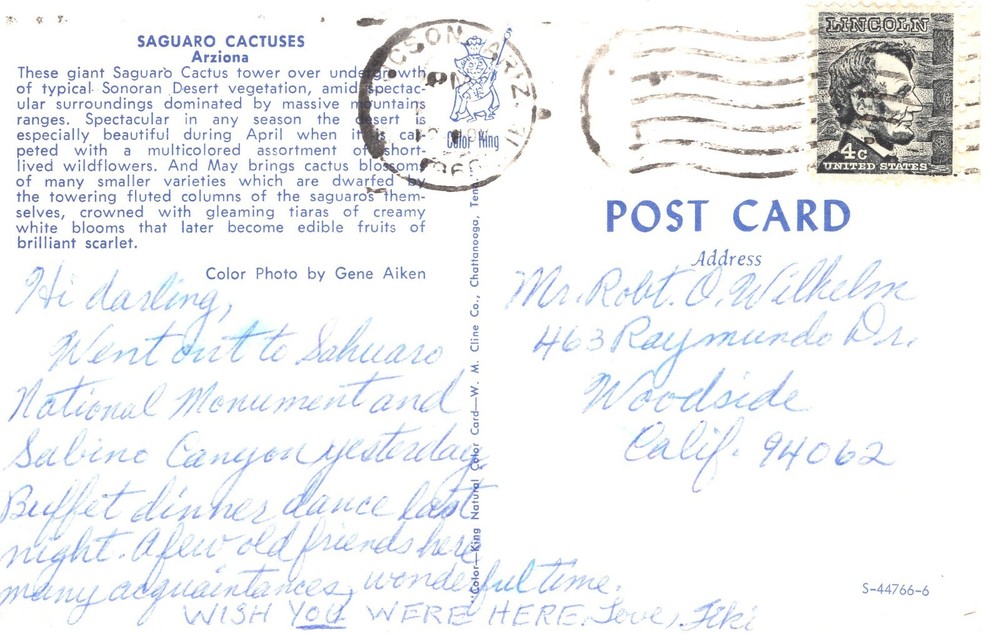 SAGUARO CACTUSES
Arziona
These giant Saguaro Cactus tower over undergrowth
of typical Sonoran Desert vegetation, amid spectac-
ular surroundings dominated by massive mountains
ranges. Spectacular in any season the desert is
especially beautiful during April when it is car-
peted with a multicolored assortment of short-
lived wildflowers. And May brings cactus blossoms
of many smaller varieties which are dwarfed by
the towering fluted columns of the saguaros them-
selves, crowned with gleaming tiaras of creamy
white blooms that later become edible fruits of
brilliant scarlet.
Color Photo by Gene Aiken
Hi darling,
Went out to Sahuaro
National Monument and
Sabino Canyon yesterday,
Buffet dinner dance last
night. A few old friends here
many acquaintances, wonderful time.
WISH YOU WERE HERE. Love,
Color King
"Color—King Natural Color Card—W. M. Cline Co., Chattanooga,
ARIZ.
PM
LINCOLN
4c
UNITED STATES
POST CARD
Address
Mr. Robt. O. Wilhelm
463 Raymundo Dr.
Woodside
Calif. 94062
S-44766-6